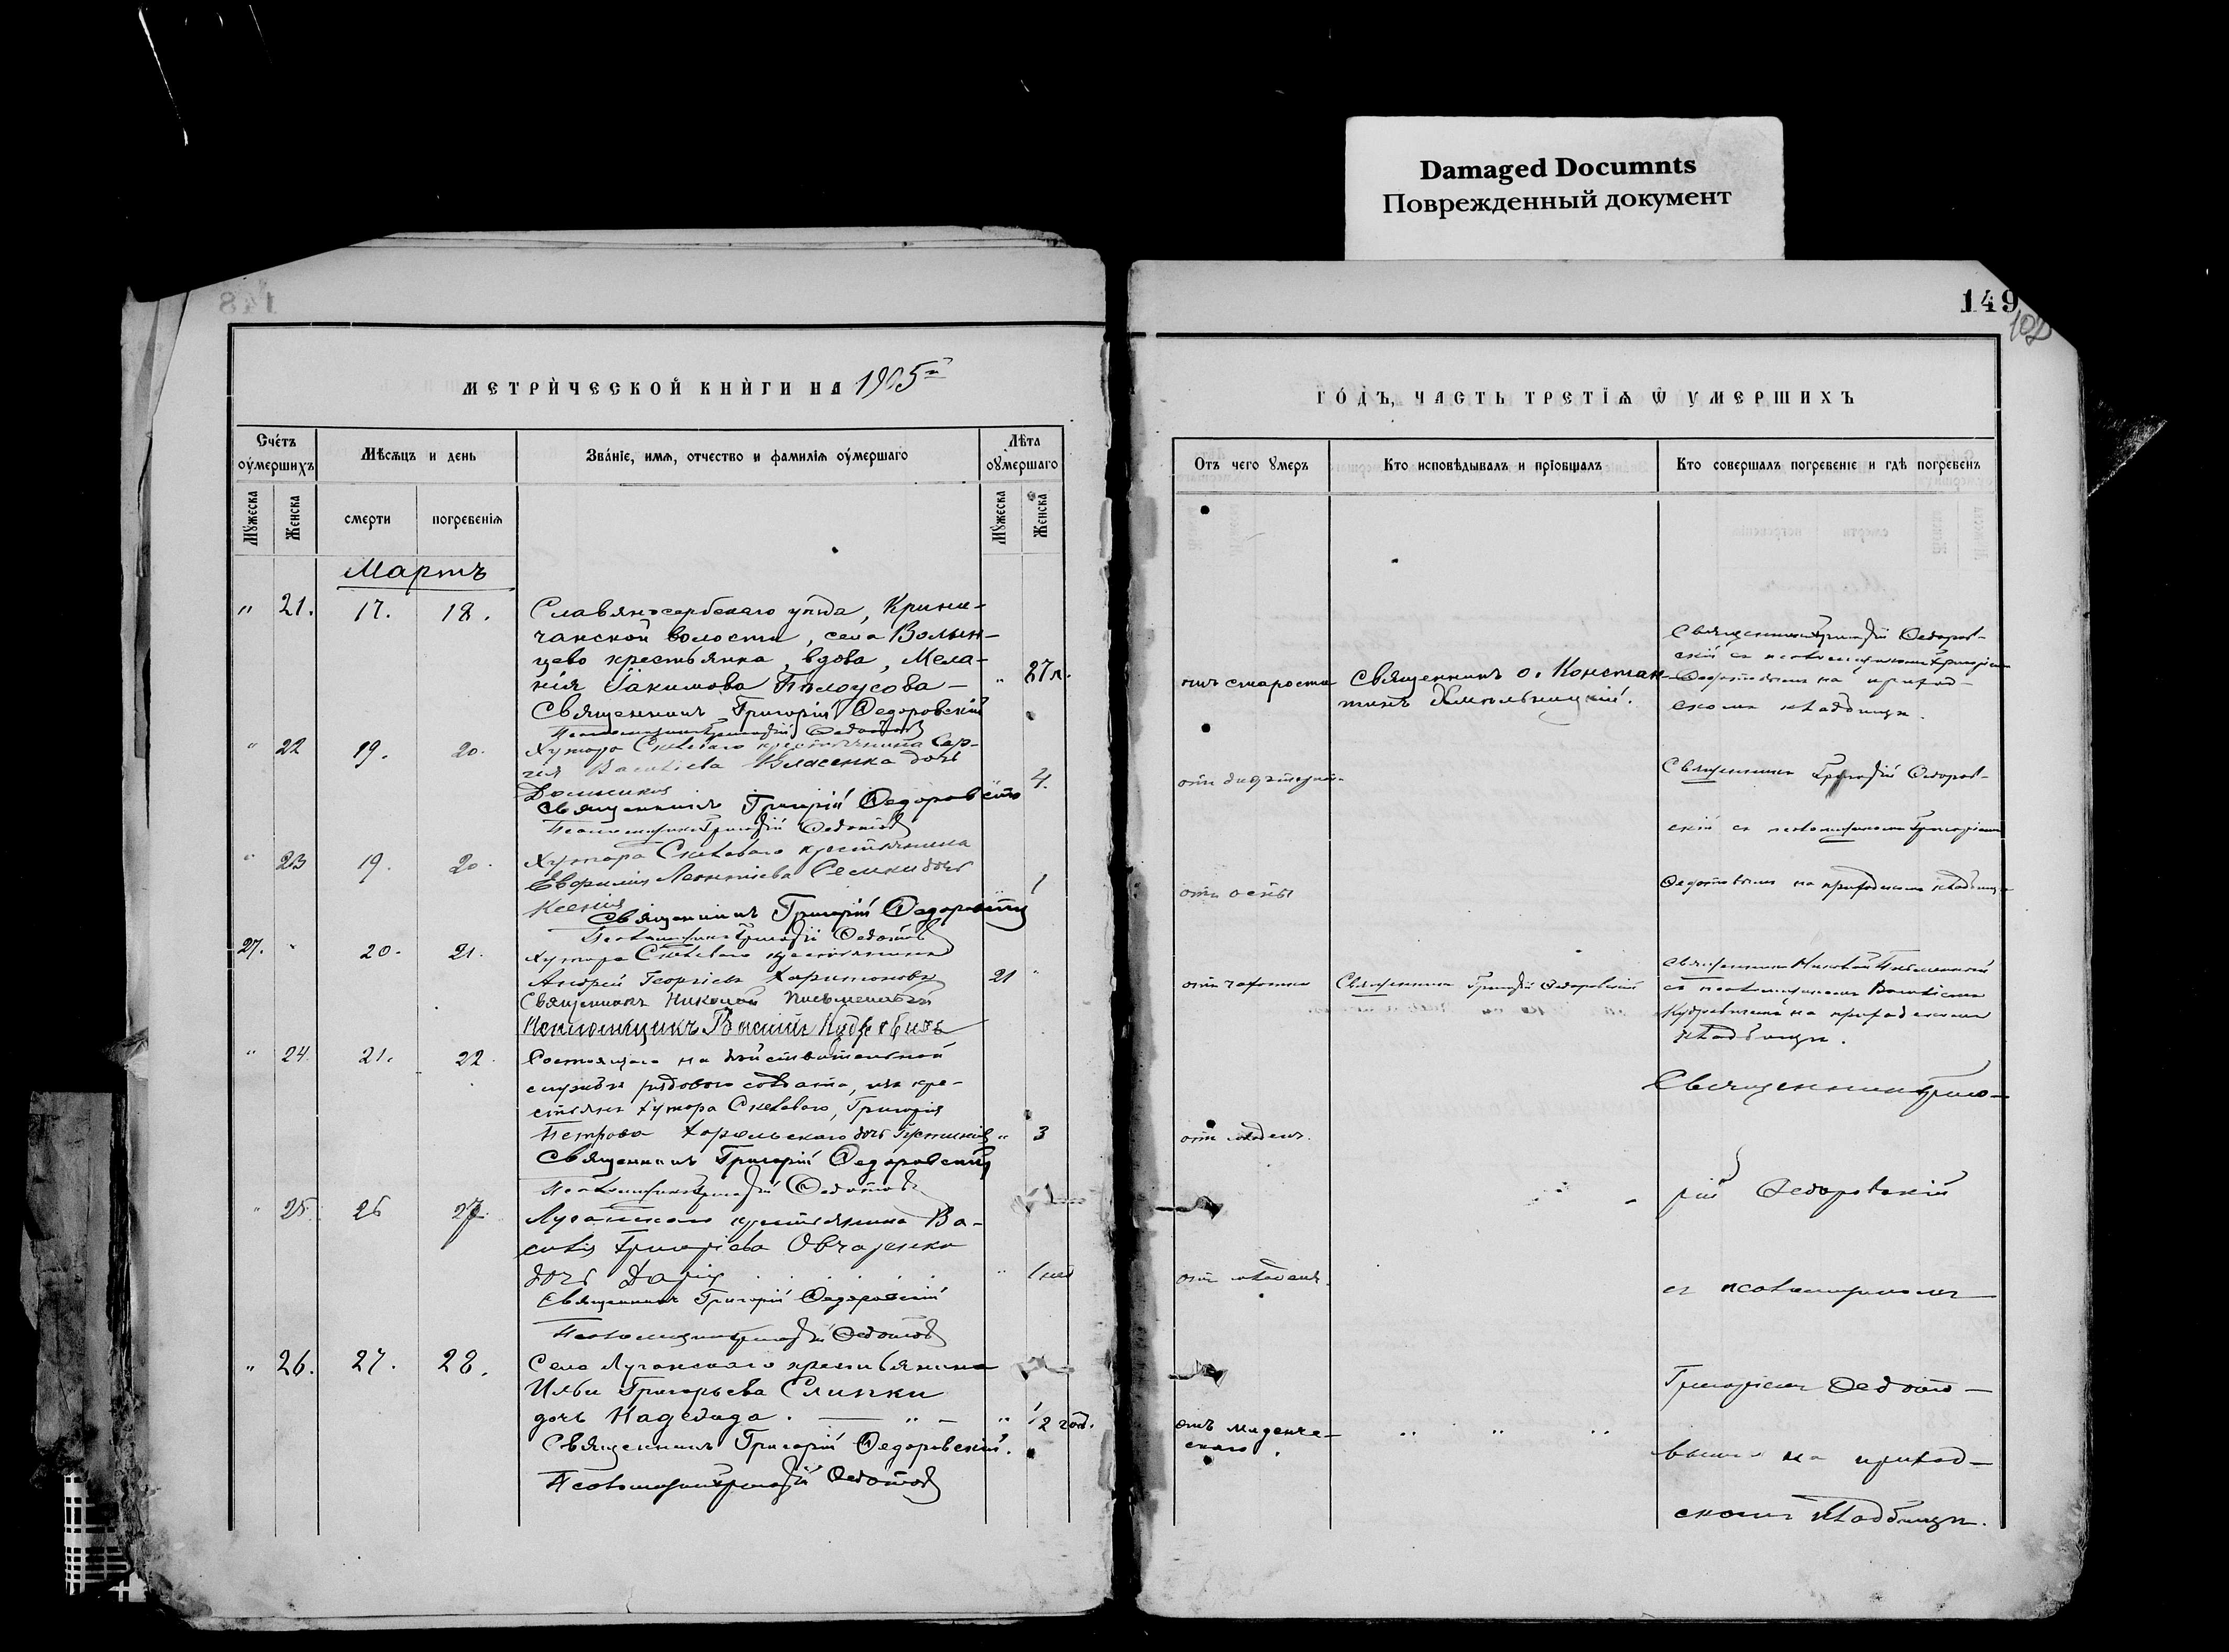 Damaged Documnts
Поврежденный документ
149
102
148
МЕТРИЧЕСКОЙ КНИГИ НА 1905й
ГОДЪ, ЧАСТЬ ТРЕТІѦ Ѿ УМЕРШИХЪ
Счётъ оумершихъ
Мѣсѧцъ и день
Званіе, имѧ, отчество и фамиліѧ оумершаго
Лѣта оумершаго
Отъ чего умеръ
Кто исповѣдывалъ и пріобщалъ
Кто совершалъ погребеніе и гдѣ погребенъ
Мужеска
Женска
смерти
погребеніѧ
Мужеска
Женска
Мартъ
" 21. 17. 18. Славяносербскаго уѣзда, Крини-
чанской волости, села Волын-
цево крестьянка, вдова, Мела-
нія Іакимова Бѣлоусова - "
Священникъ Григорій Ѳедоровскій
Псаломщикъ Григорій Ѳедотов
отъ старости
Священникъ о. Констан-
тинъ
Священникъ Григорій Ѳедоров-
скій съ псаломщикомъ Григоріемъ
Ѳедотовымъ на приход-
скомъ кладбищѣ.
" 22 19. 20. Хутора крестьянина Сер-
гія Васильева Власенка дочь
4.
Священникъ Григорій Ѳедоровскій
Псаломщикъ Григорій Ѳедотов
Священникъ Григорій Ѳедоров-
скій съ псаломщикомъ Григоріемъ
Ѳедотовымъ на приходскомъ кладбищѣ
" 23 19. 20. Хутора крестьянина
Леонтіева дочь
Ксенія
1
Священникъ Григорій Ѳедоровскій
Псаломщикъ Григорій Ѳедотов
отъ оспы
27. " 20. 21. Хутора крестьянинъ
Андрей Георгіевъ Харитоновъ 21 "
Священникъ Николай
Псаломщикъ Василій
отъ чахотки
Священникъ Григорій Ѳедоровскій
Священникъ Николай
съ псаломщикомъ Василіемъ
на приходскомъ
кладбищѣ.
" 24. 21. 22. Состоящаго на дѣйствительной
службѣ рядового солдата, изъ кре-
стьянъ хутора Григорія
Петрова дочь " 3
Священникъ Григорій Ѳедоровскій
Псаломщикъ Григорій Ѳедотов
отъ младен.
Священникъ Григо-
рій Ѳедоровскій
" 25. 26 27 Луганскаго крестьянина Ва-
силія Григоріева Овчаренка
дочь Дарія "
Священникъ Григорій Ѳедоровскій
Псаломщикъ Григорій Ѳедотов
отъ младен.
съ псаломщикомъ
" 26. 27. 28. Села Луганскаго крестьянина
Ильи Григорьева Слипки
дочь Надежда. — " — " 1/2 год.
Священникъ Григорій Ѳедоровскій.
Псаломщикъ Григорій Ѳедотов
отъ младенче-
скаго.
" " "
Григоріемъ Ѳедото-
вымъ на приход-
скомъ кладбищѣ.